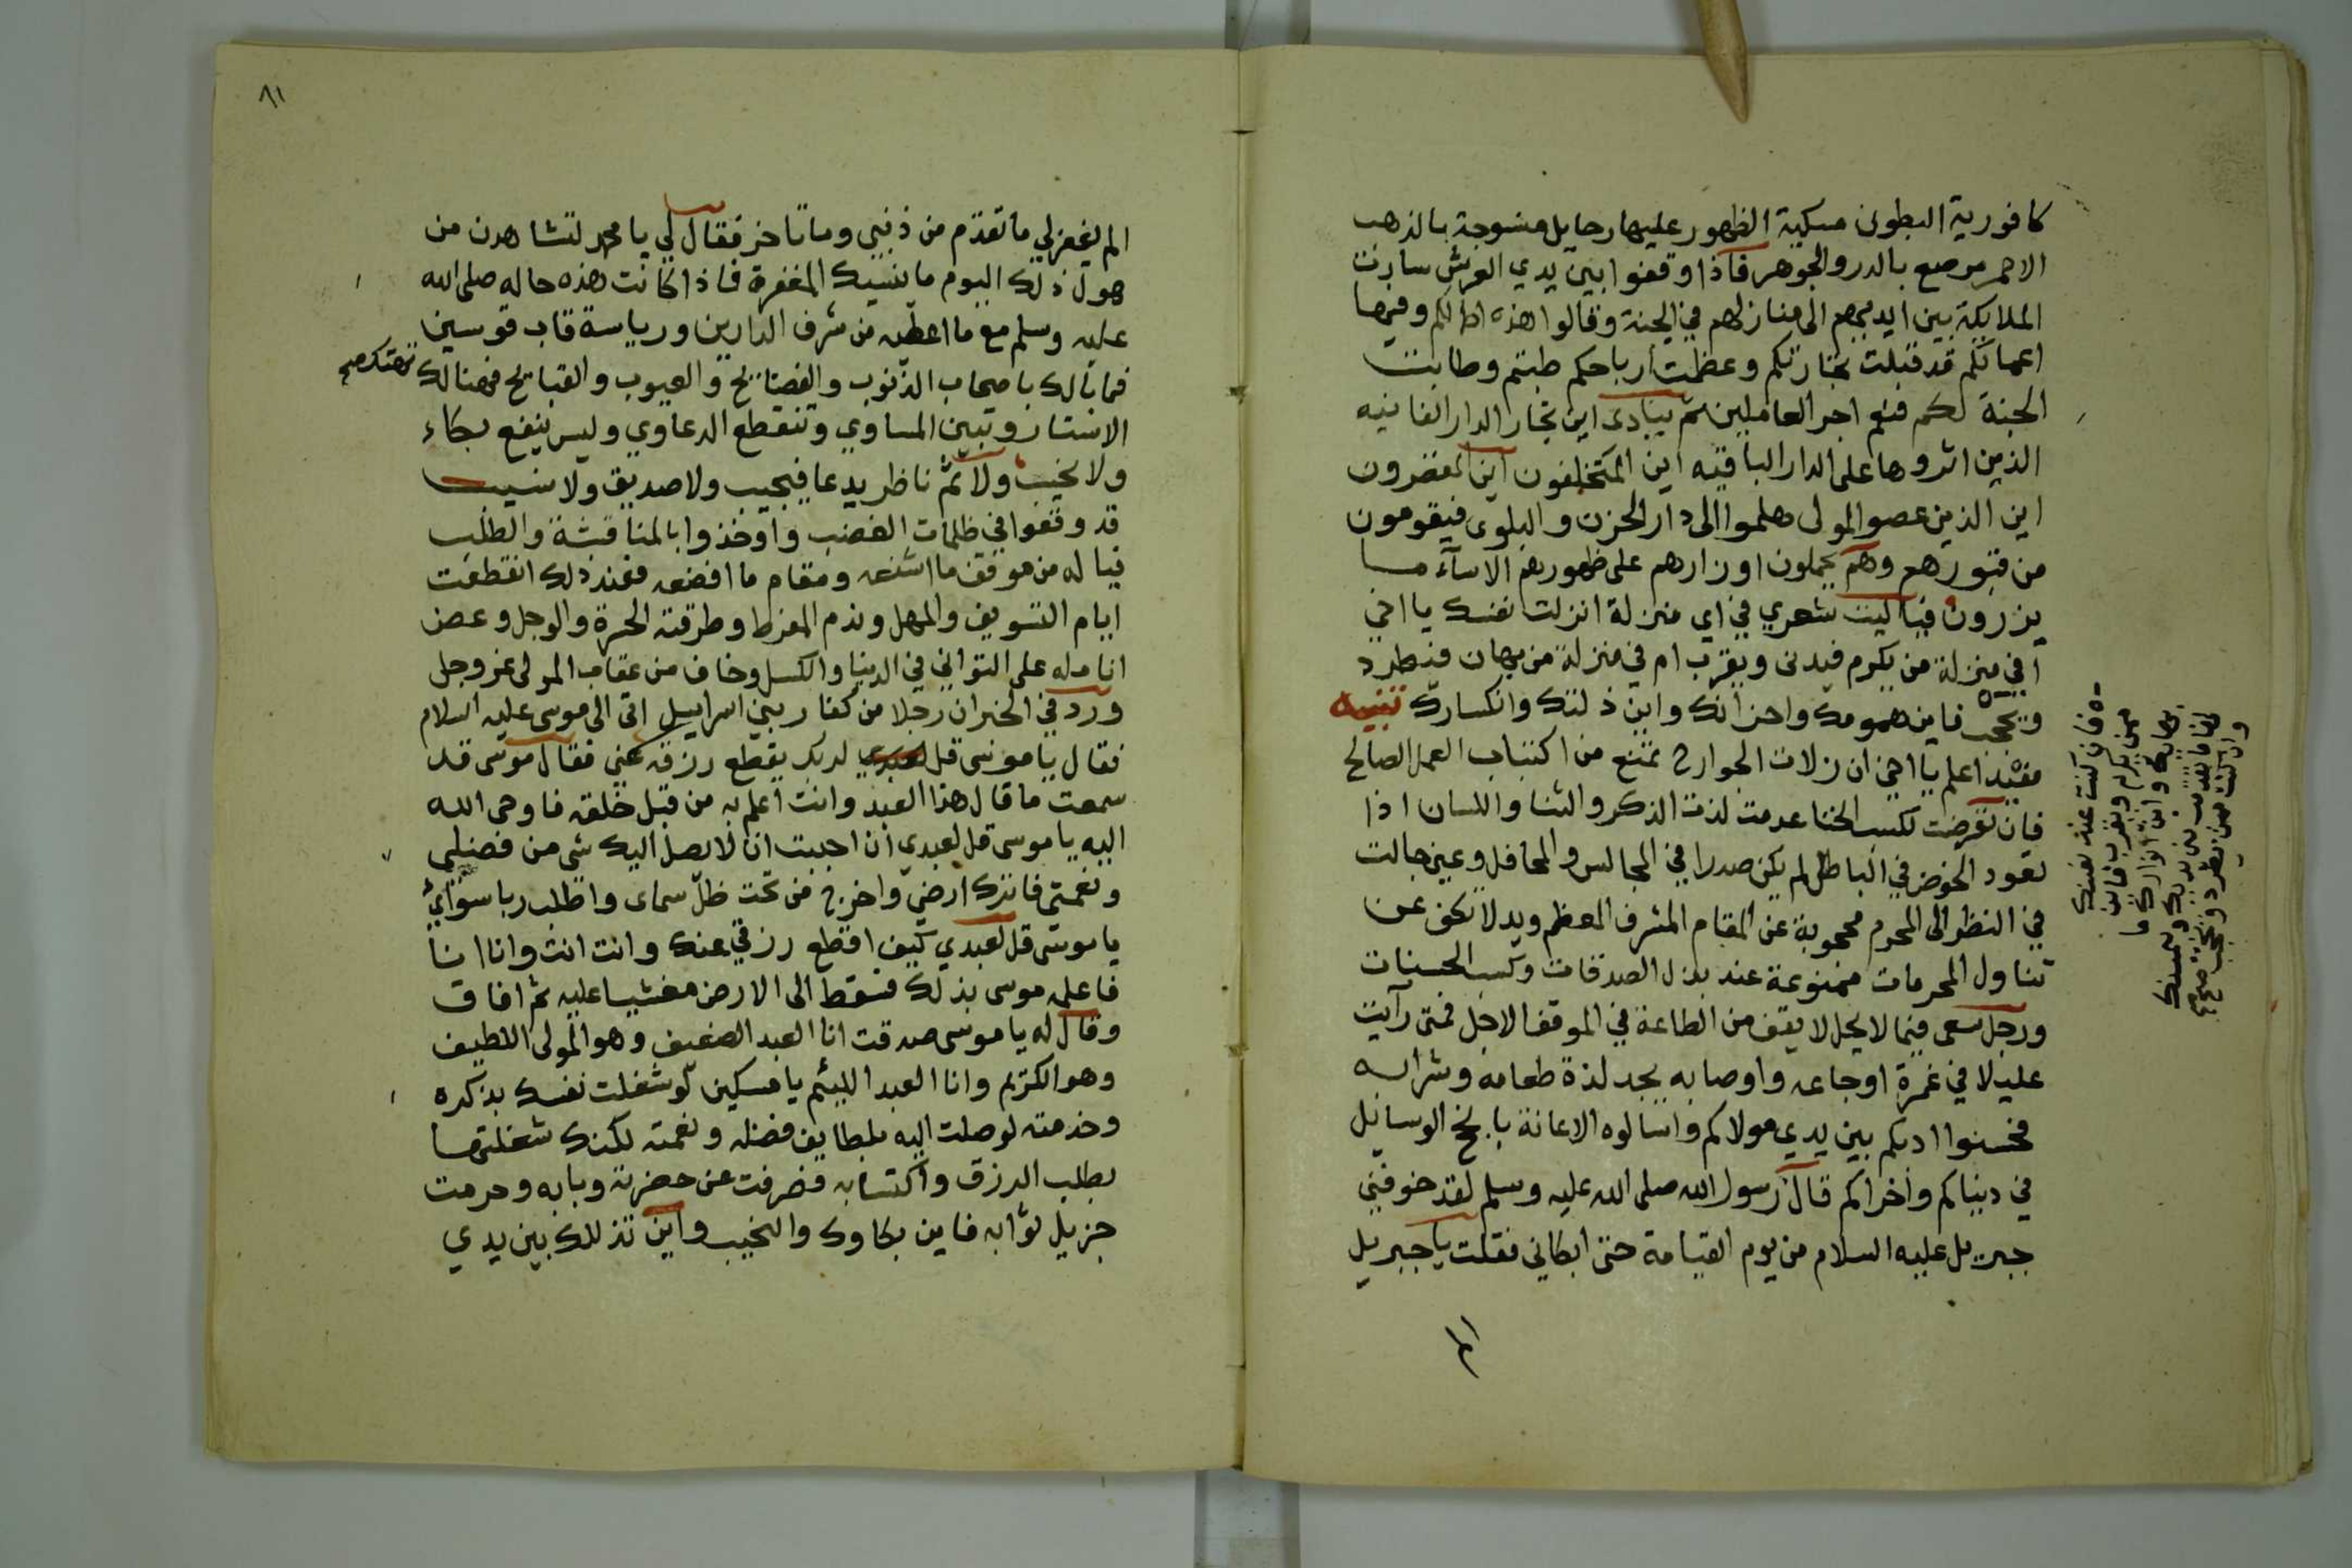 كافورية البطون مسكية الظهور عليها رحايل منسوجة بالذهب
الاحمر مرصع بالدر والجوهر فاذا وقفوا بين يدي العرش سارت
الملايكة بين ايديهم الى منازلهم في الجنة وقالوا هذه اعمالكم وفيها
اعمالكم قد قبلت تجارتكم وعظمت ارباحكم طبتم وطابت
الجنة لكم فنعم اجر العاملين ثم ينادى اين تجار الدار الفانيه
الذين اثروها على الدار الباقيه اين المتخلفون اين المقصرون
اين الذين عصوا المولى هلموا الى دار الحزن والبلوى فيقومون
من قبورهم وهم يحملون اوزارهم على ظهورهم الاسآء ما
يزرون فيا ليت شعري في اي منزلة انزلت نفسك يا اخي
افي منزلة من يكرم فيدنى ويقرب ام في منزلة من يهان فيطرد
ويحجب فاين همومك واحزانك واين ذلتك وانكسارك تنبيه
مفيد اعلم يا اخي ان زلات الجوارح تمنع من اكتساب العمل الصالح
فان تعرضت لكسب الخنا عدمت لذت الذكر والثنا واللسان اذا
تعود الخوض في الباطل لم يكن صدرا في المجالس والمحافل وعين جالت
في النظر الى المحرم محجوبة عن المقام المشرف المعظم ويد لا تكف عن
تناول المحرمات ممنوعة عند بذل الصدقات وكسب الحسنات
ورجل سعى فيما لا يحل لا يقف من الطاعة في الموقف الاجل فمتى رآيت
عليلا في غمرة اوجاعه واوصابه يجد لذة طعامه وشرابه
فحسنوا ادبكم بين يدي مولاكم واسالوه الاعانة بانجح الوسايل
في دنياكم واخراكم قال رسول الله صلى الله عليه وسلم لقد خوفني
جبريل عليه السلام من يوم القيامة حتى ابكاني فقلت يا جبريل
فان كنت عند نفسك
ممن يكرم ويقرب فاين
وان كنت ممن يطرد ويحجب صح
٨١
الم يغفر لي ما تقدم من ذنبي وما تاخر فقال لي يا محمد لتشاهدن من
هول ذلك اليوم ما ينسيك المغفرة فاذا كانت هذه حاله صلى الله
عليه وسلم مع ما اعطيه من شرف الدارين ورياسة قاب قوسين
فما بالك باصحاب الذنوب والفضايح والعيوب والقبايح فهنالك تهتك صح
الاستار وتبين المساوي وتنقطع الدعاوي وليس ينفع بكاء
ولا نحيب ولا ثم ناظر يدعا فيجيب ولا صديق ولا نسيب
قد وقفوا في ظلمات الغضب واوخذوا بالمناقشة والطلب
فيا له من موقف ما اشنعه ومقام ما افضعه فعند ذلك انقطعت
ايام التسويف والمهل وندم المفرط وطرقته الحسرة والوجل وعض
انامله على التواني في الدنيا والكسل وخاف من عقاب المولى عز وجل
ورد في الخبر ان رجلا من كفار بني اسراييل اتى الى موسى عليه السلام
فقال يا موسى قل لربك يقطع رزقه عني فقال موسى قد
سمعت ما قال هذا العبد وانت اعلم به من قبل خلقه فاوحى الله
اليه يا موسى قل لعبدي ان احببت ان لا يصل اليك شي من فضلي
ونعمتي فاترك ارضي واخرج من تحت ظل سماى واطلب ربا سوائي
يا موسى قل لعبدي كيف اقطع رزقي عنك وانت انت وانا انا
فاعلمه موسى بذلك فسقط الى الارض مغشيا عليه ثم افاق
وقال له يا موسى صدقت انا العبد الضعيف وهو المولى اللطيف
وهو الكريم وانا العبد اللئيم يا مسكين لو شغلت نفسك بذكره
وخدمته لوصلت اليه بلطايف فضله ونعمته لكنك شغلتها
بطلب الرزق واكتسابه فصرفت عن حضرته وبابه وحرمت
جزيل ثوابه فاين بكاوك والنحيب واين تذللك بين يدي